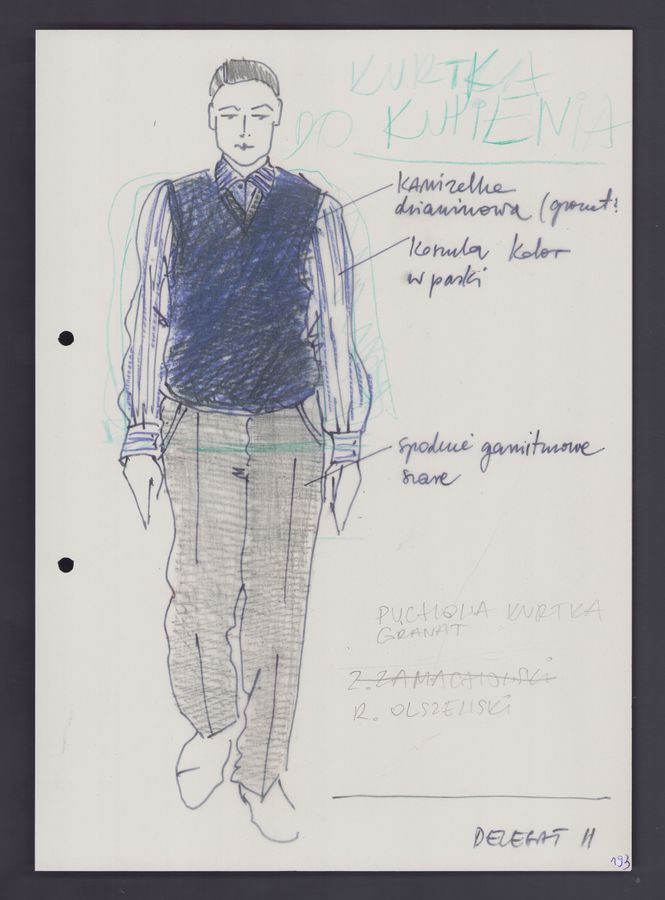 KURTKA
DO KUPIENIA
kamizelka
dzianinowa (granat)
Koszula kolor
w paski
spodnie garniturowe
szare
PUCHOWA KURTKA
GRANAT
Z. ZAMACHOWSKI
R. OLSZEWSKI
DELEGAT II
193